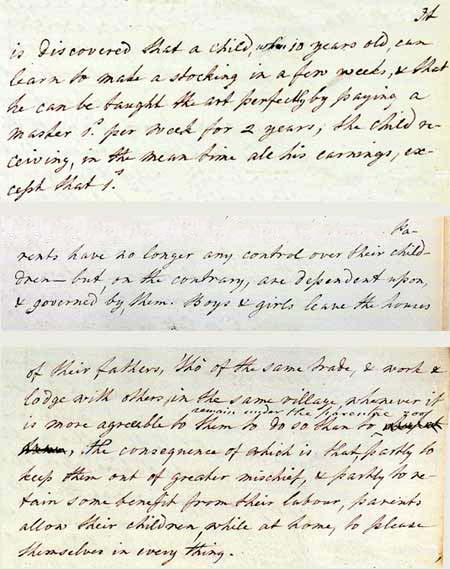 34
is discovered that a child, when 10 years old, can
learn to make a stocking in a few weeks, & that
he can be taught the art perfectly by paying a
master 1.s per week for 2 years; the child re-
ceiving, in the mean time all his earnings, ex-
cept that 1.s
Pa-
rents have no longer any control over their chil-
dren — but, on the contrary, are dependent upon,
& governed by, them. Boys & girls leave the houses
of their fathers, tho' of the same trade, & work &
lodge with others, in the same village, whenever it
remain under the parental roof
is more agreeable to them to do so than to
, the consequence of which is that, partly to
keep them out of greater mischief, & partly to re-
tain some benefit from their labour, parents
allow their children, while at home, to please
themselves in every thing.